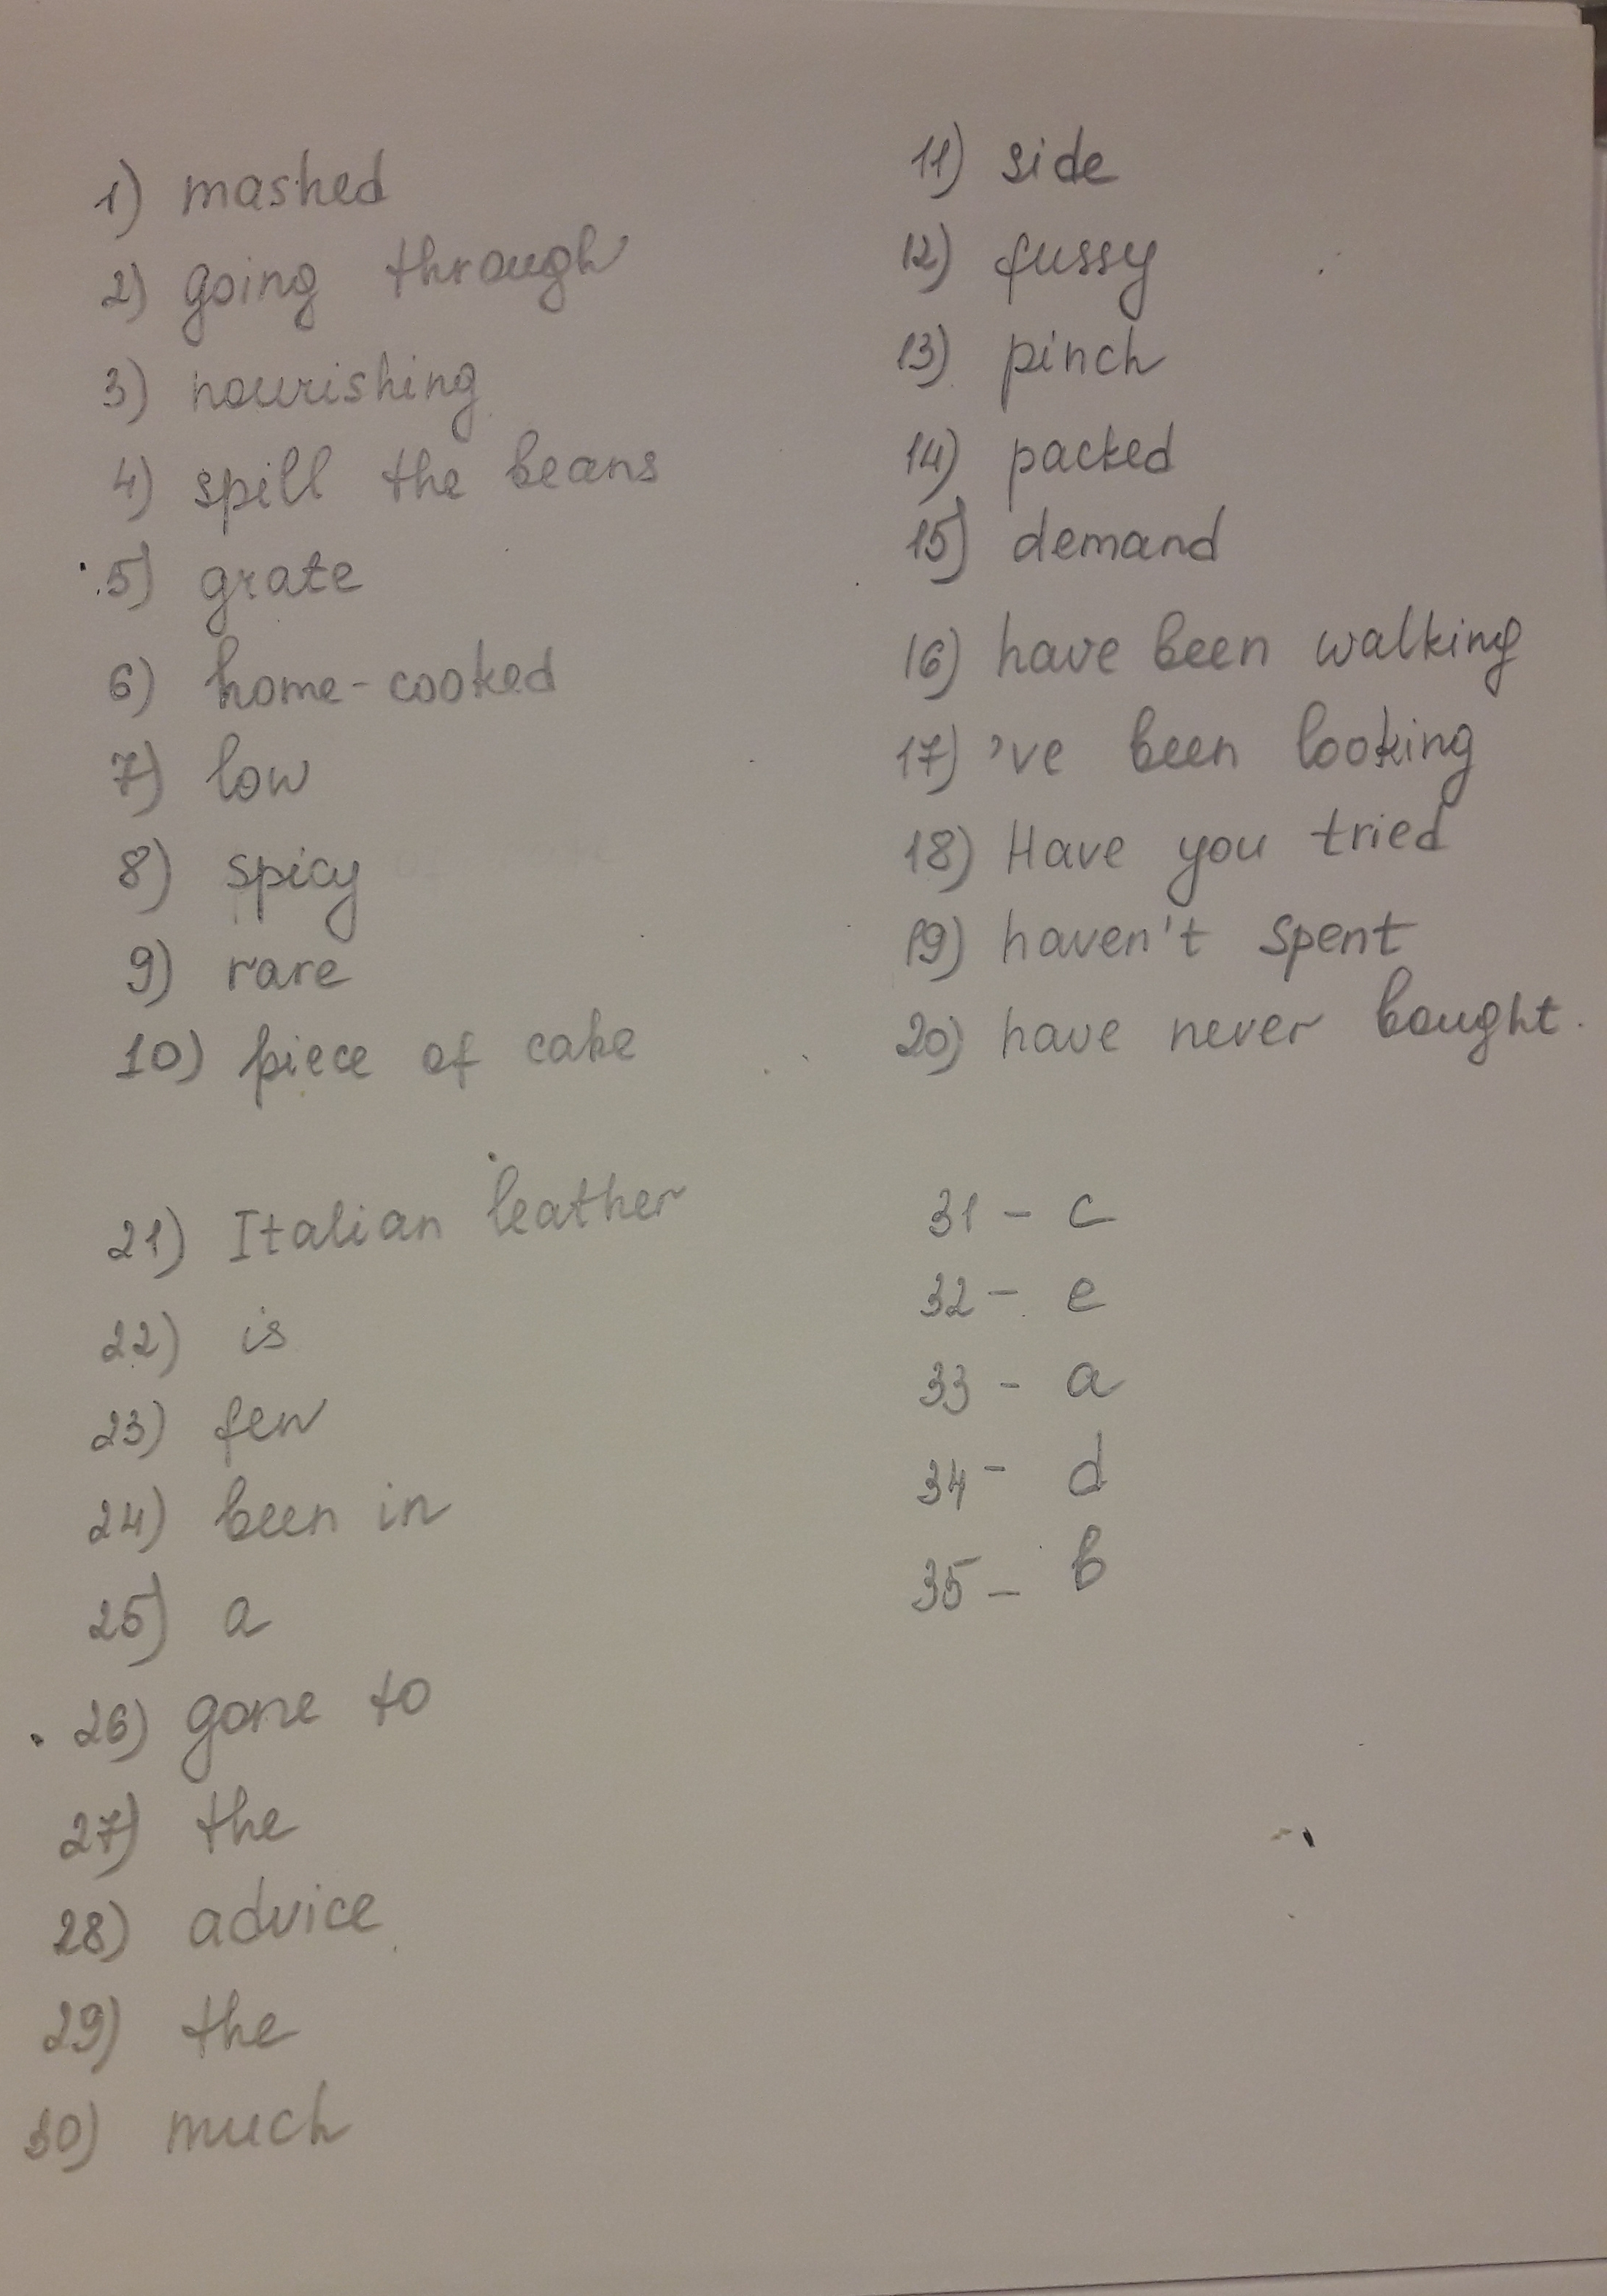 1) mashed
2) going through
3) nourishing
4) spill the beans
5) grate
6) home-cooked
7) low
8) spicy
9) rare
10) piece of cake
11) side
12) fussy
13) pinch
14) packed
15) demand
16) have been walking
17) 've been looking
18) Have you tried
19) haven't spent
20) have never bought.
21) Italian leather
22) is
23) few
24) been in
25) a
26) gone to
27) the
28) advice
29) the
30) much
31 - c
32 - e
33 - a
34 - d
35 - b